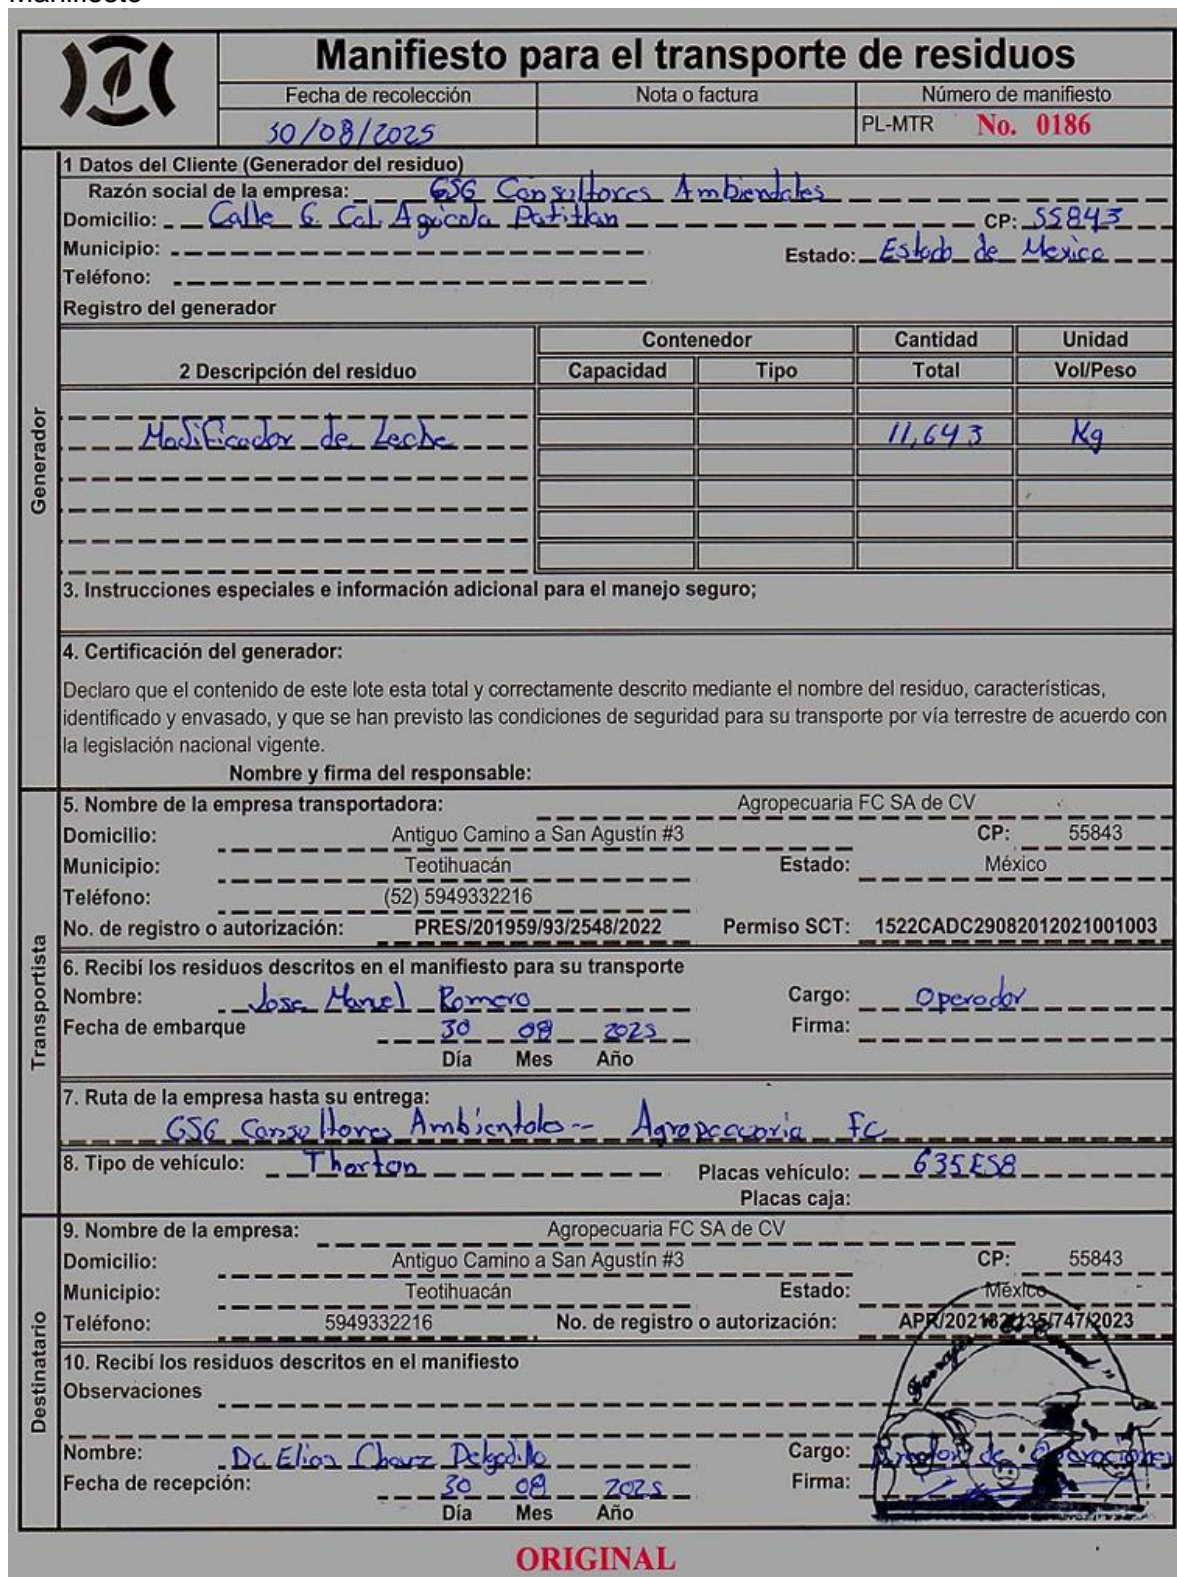 Manifiesto
Manifiesto para el transporte de residuos
Fecha de recolección Nota o factura Número de manifiesto
30/08/2025 PL-MTR No. 0186
1 Datos del Cliente (Generador del residuo)
Razón social de la empresa: GSG Consultores Ambientales
Domicilio: Calle 6 Col. Agricola Patitlan CP: 55843
Municipio: Estado: Estado de Mexico
Teléfono:
Registro del generador
Contenedor Cantidad Unidad
2 Descripción del residuo Capacidad Tipo Total Vol/Peso
Modificador de Leche 11,643 Kg
Generador
3. Instrucciones especiales e información adicional para el manejo seguro;
4. Certificación del generador:
Declaro que el contenido de este lote esta total y correctamente descrito mediante el nombre del residuo, características,
identificado y envasado, y que se han previsto las condiciones de seguridad para su transporte por vía terrestre de acuerdo con
la legislación nacional vigente.
Nombre y firma del responsable:
5. Nombre de la empresa transportadora: Agropecuaria FC SA de CV
Domicilio: Antiguo Camino a San Agustín #3 CP: 55843
Municipio: Teotihuacán Estado: México
Teléfono: (52) 5949332216
No. de registro o autorización: PRES/201959/93/2548/2022 Permiso SCT: 1522CADC29082012021001003
Transportista
6. Recibí los residuos descritos en el manifiesto para su transporte
Nombre: Jose Manuel Romero Cargo: Operador
Fecha de embarque 30 08 2025 Firma:
Día Mes Año
7. Ruta de la empresa hasta su entrega:
GSG Consultores Ambientales -- Agropecuaria FC
8. Tipo de vehículo: Thorton Placas vehículo: 635ES8
Placas caja:
9. Nombre de la empresa: Agropecuaria FC SA de CV
Domicilio: Antiguo Camino a San Agustín #3 CP: 55843
Municipio: Teotihuacán Estado: México
Teléfono: 5949332216 No. de registro o autorización:
Destinatario
10. Recibí los residuos descritos en el manifiesto
Observaciones
Nombre: Dr. Elias Chavez Delgadillo Cargo: de Operaciones
Fecha de recepción: 30 08 2025 Firma:
Día Mes Año
ORIGINAL